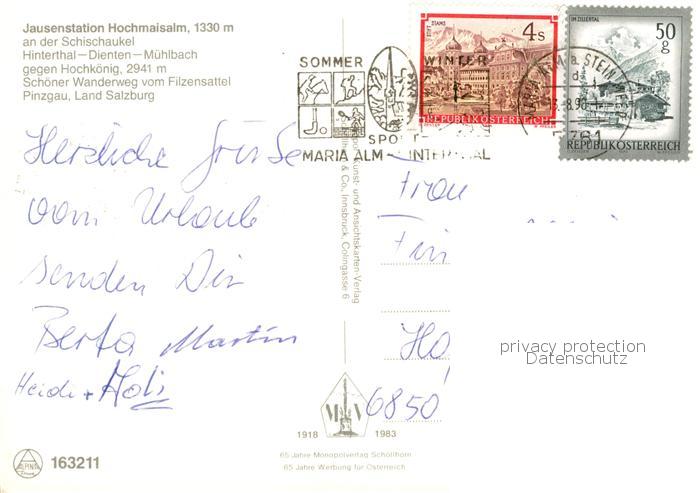 Jausenstation Hochmaisalm, 1330 m
an der Schischaukel
Hinterthal–Dienten–Mühlbach
gegen Hochkönig, 2941 m
Schöner Wanderweg vom Filzensattel
Pinzgau, Land Salzburg
SOMMER WINTER
SPORT
MARIA ALM - HINTERTHAL
STIFT STAMS
4 S
REPUBLIK ÖSTERREICH
IM ZILLERTAL
50 g
REPUBLIK ÖSTERREICH
Herzliche Grüße
vom Urlaub
senden Dir
Berta Martin
Heidi +
Kunst- und Ansichtskarten-Verlag
& Co, Innsbruck, Colingasse 6
Frau
6850
privacy protection
Datenschutz
1918 1983
65 Jahre Monopolverlag Schöllhorn
65 Jahre Werbung für Österreich
ALPINA
163211